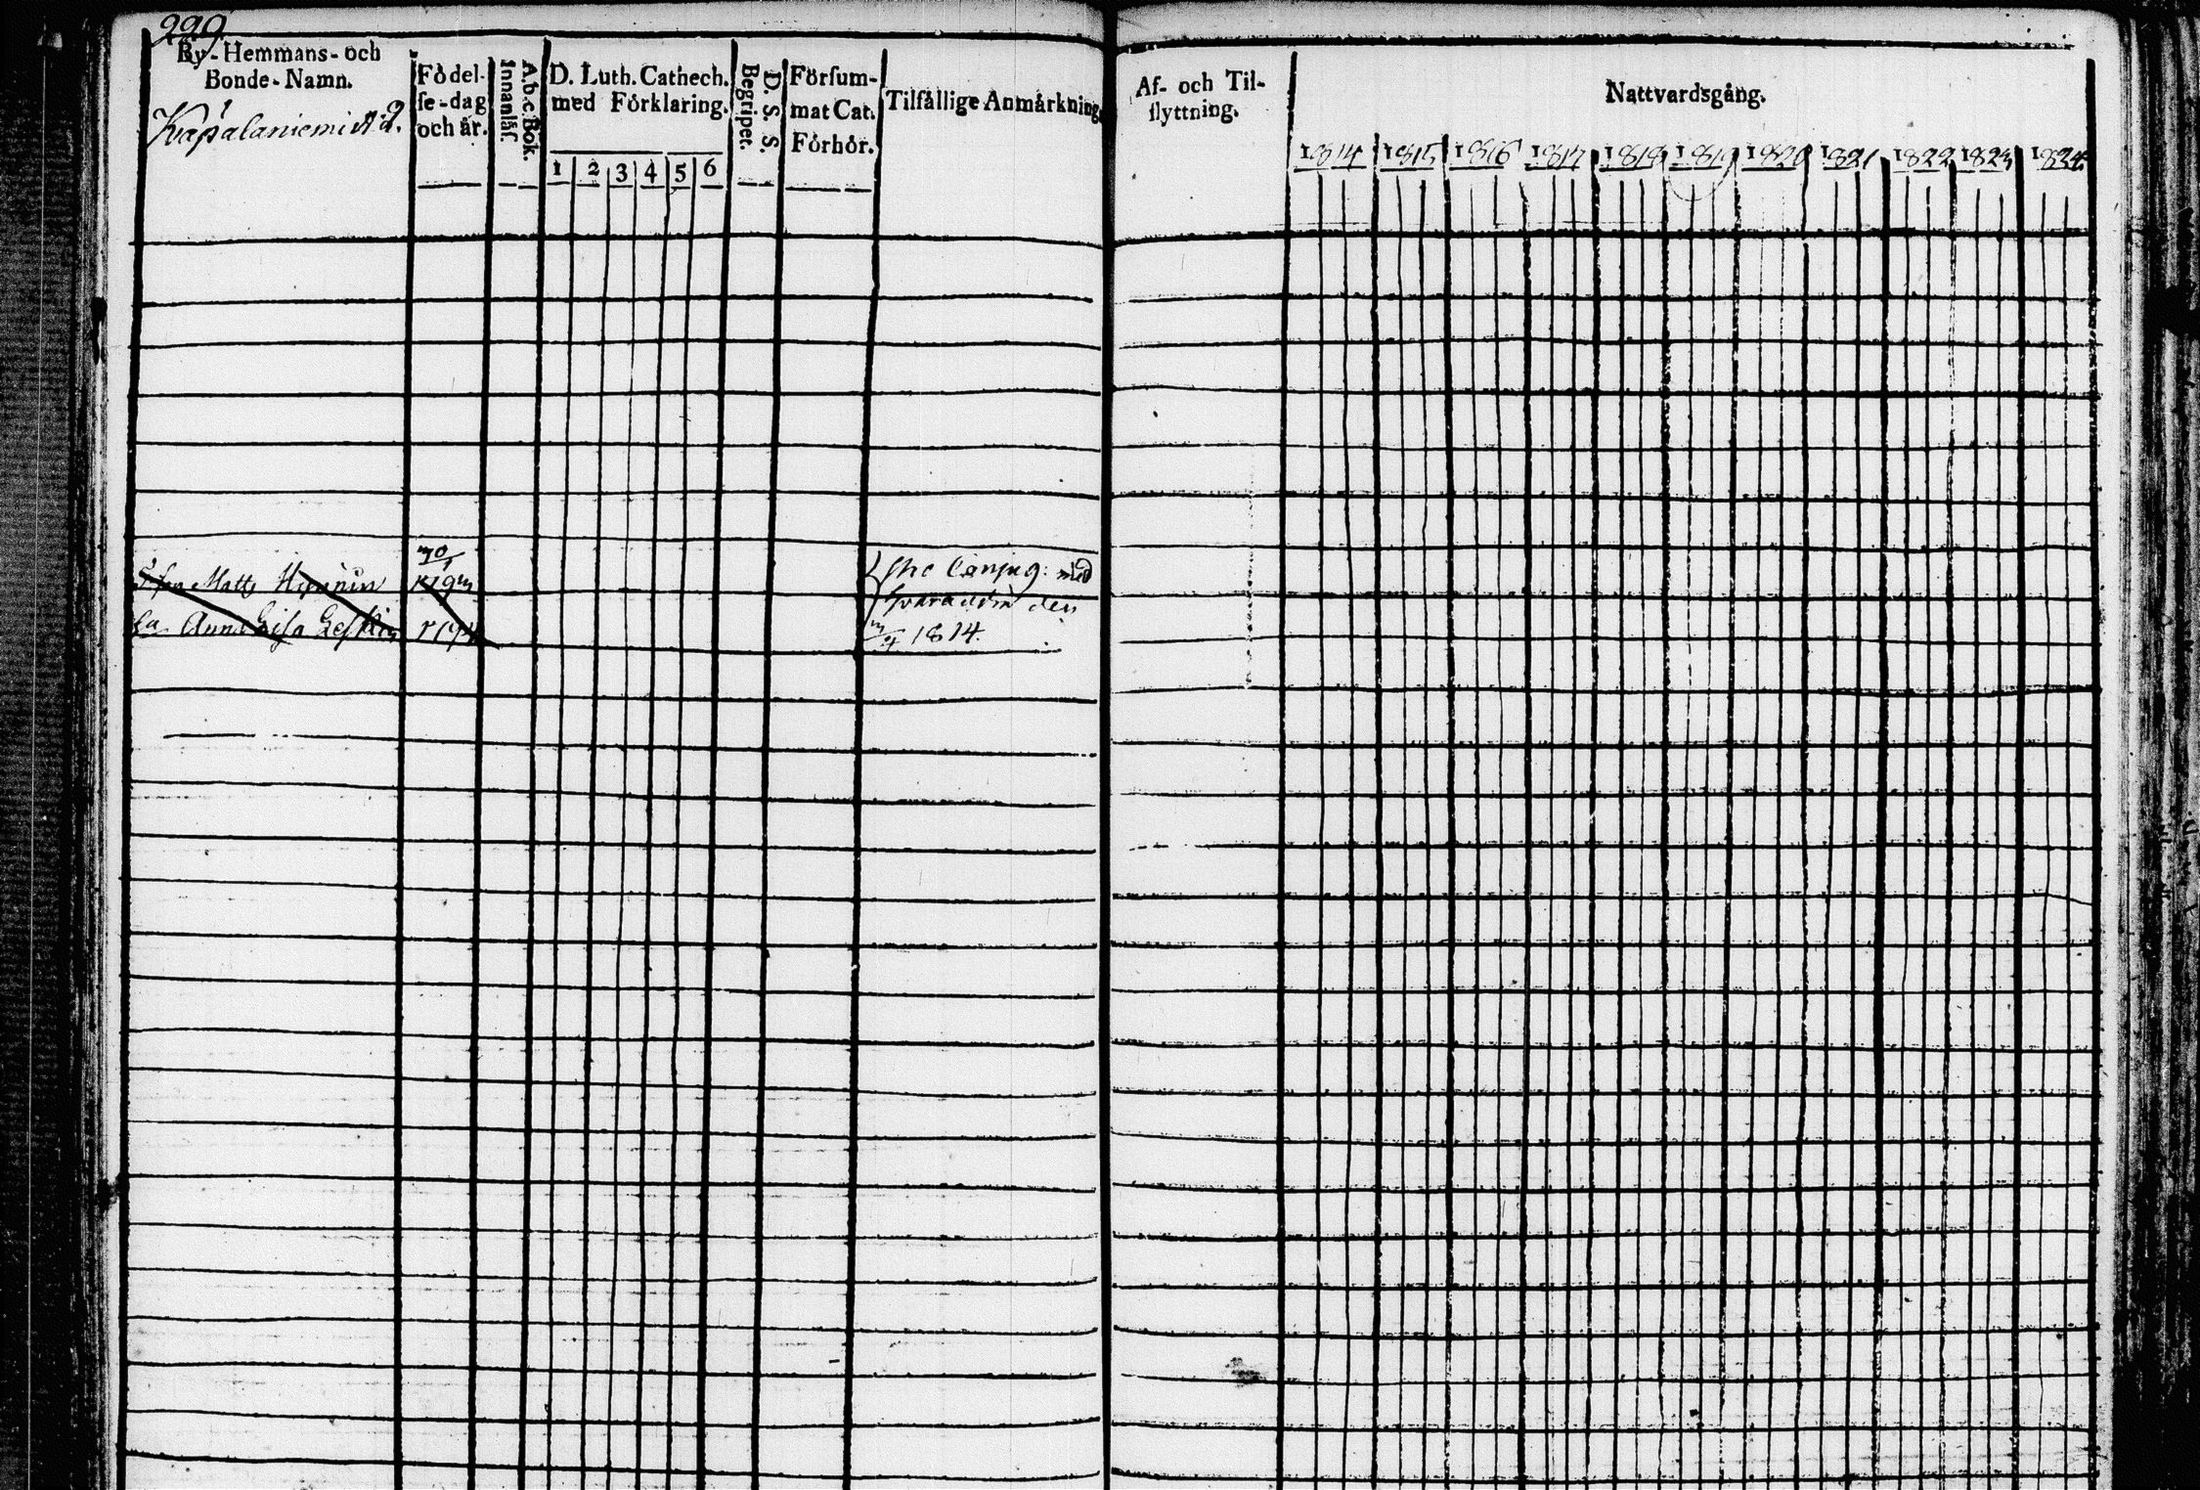 229.
By-Hemmans-och
Bonde-Namn.
Kapalaniemi N:o 2.
Födel-
se-dag
och år.
A.b.c. Bok.
Innanläs.
D. Luth. Cathech.
med Förklaring.
1 2 3 4 5 6
D. S. S.
Begripet.
Försum-
mat Cat.
Förhör.
Tilfällige Anmärkning.
Af- och Til-
flyttning.
Nattvardsgång.
1814 1815 1816 1817 1818 1819 1820 1821 1822 1823 1824
Matts
Anna Lisa
Conjug: med
den
1814.